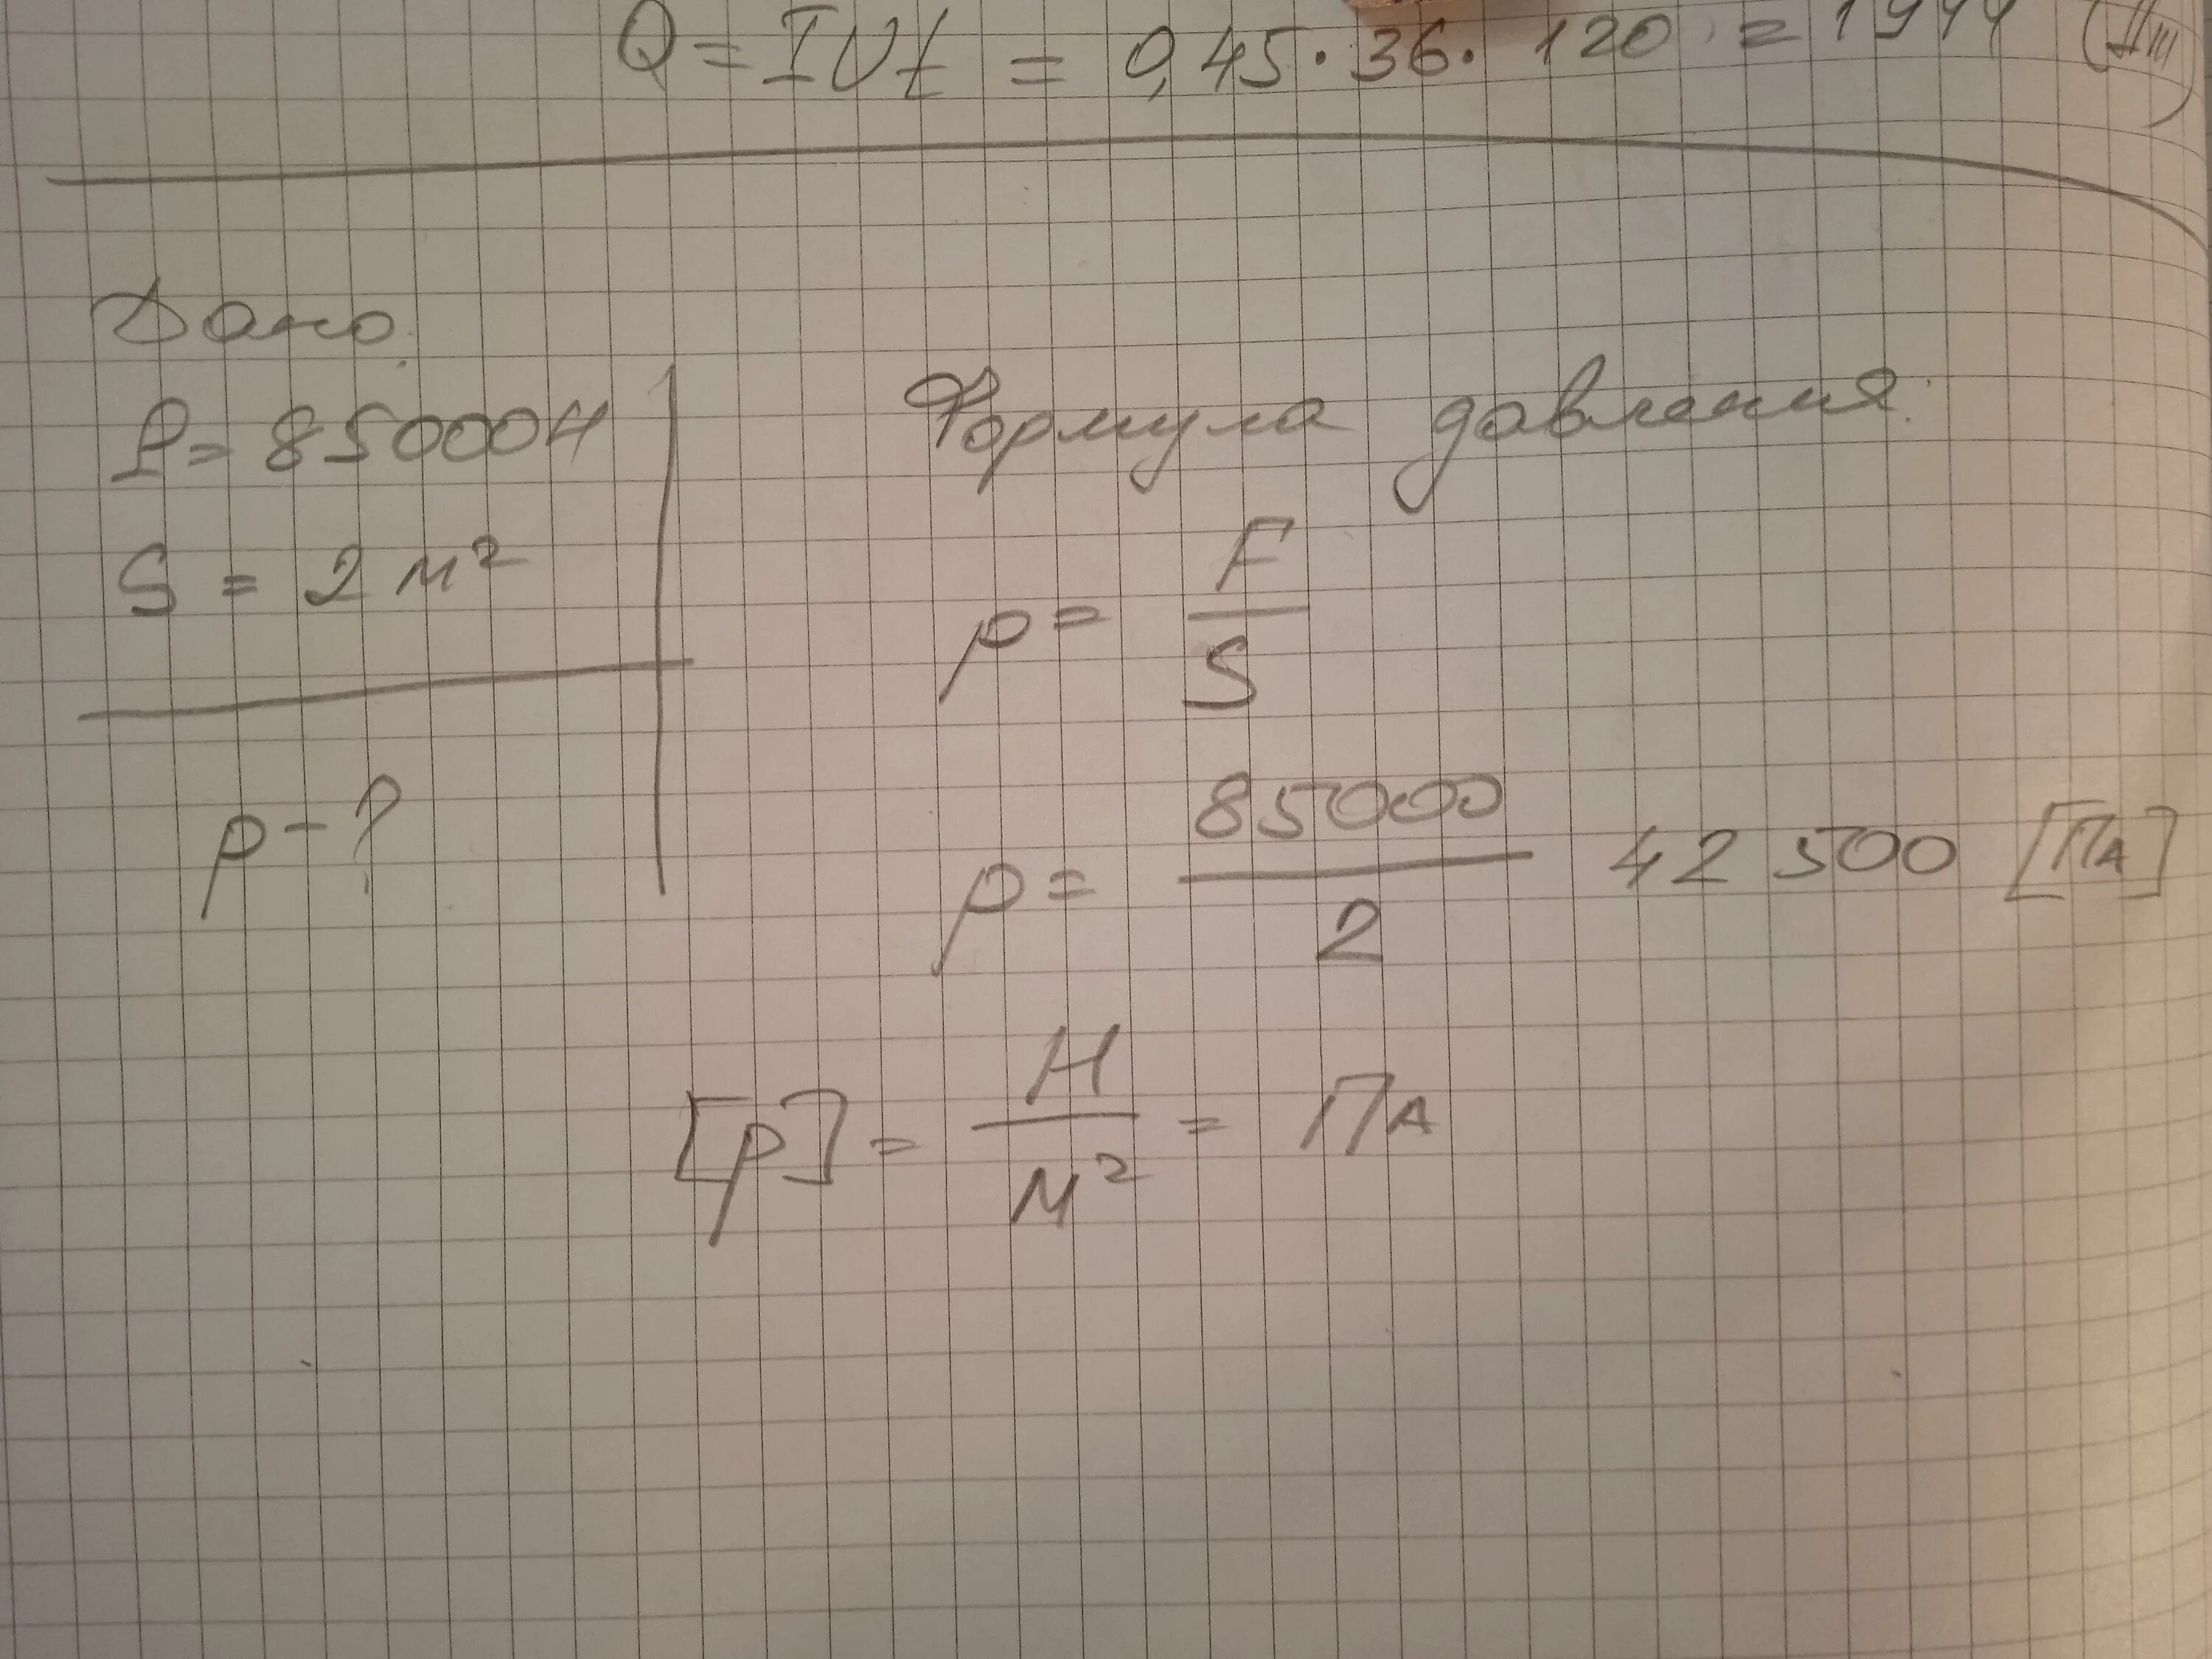 Q = IUt = 0,45 · 36 · 120 = 1944 (Дж)
Дано:
P = 85000 Н
S = 2 м²
p - ?
Формула давления:
p = F / S
p = 85000 / 2 42 500 [ПА]
[p] = Н / м² = ПА